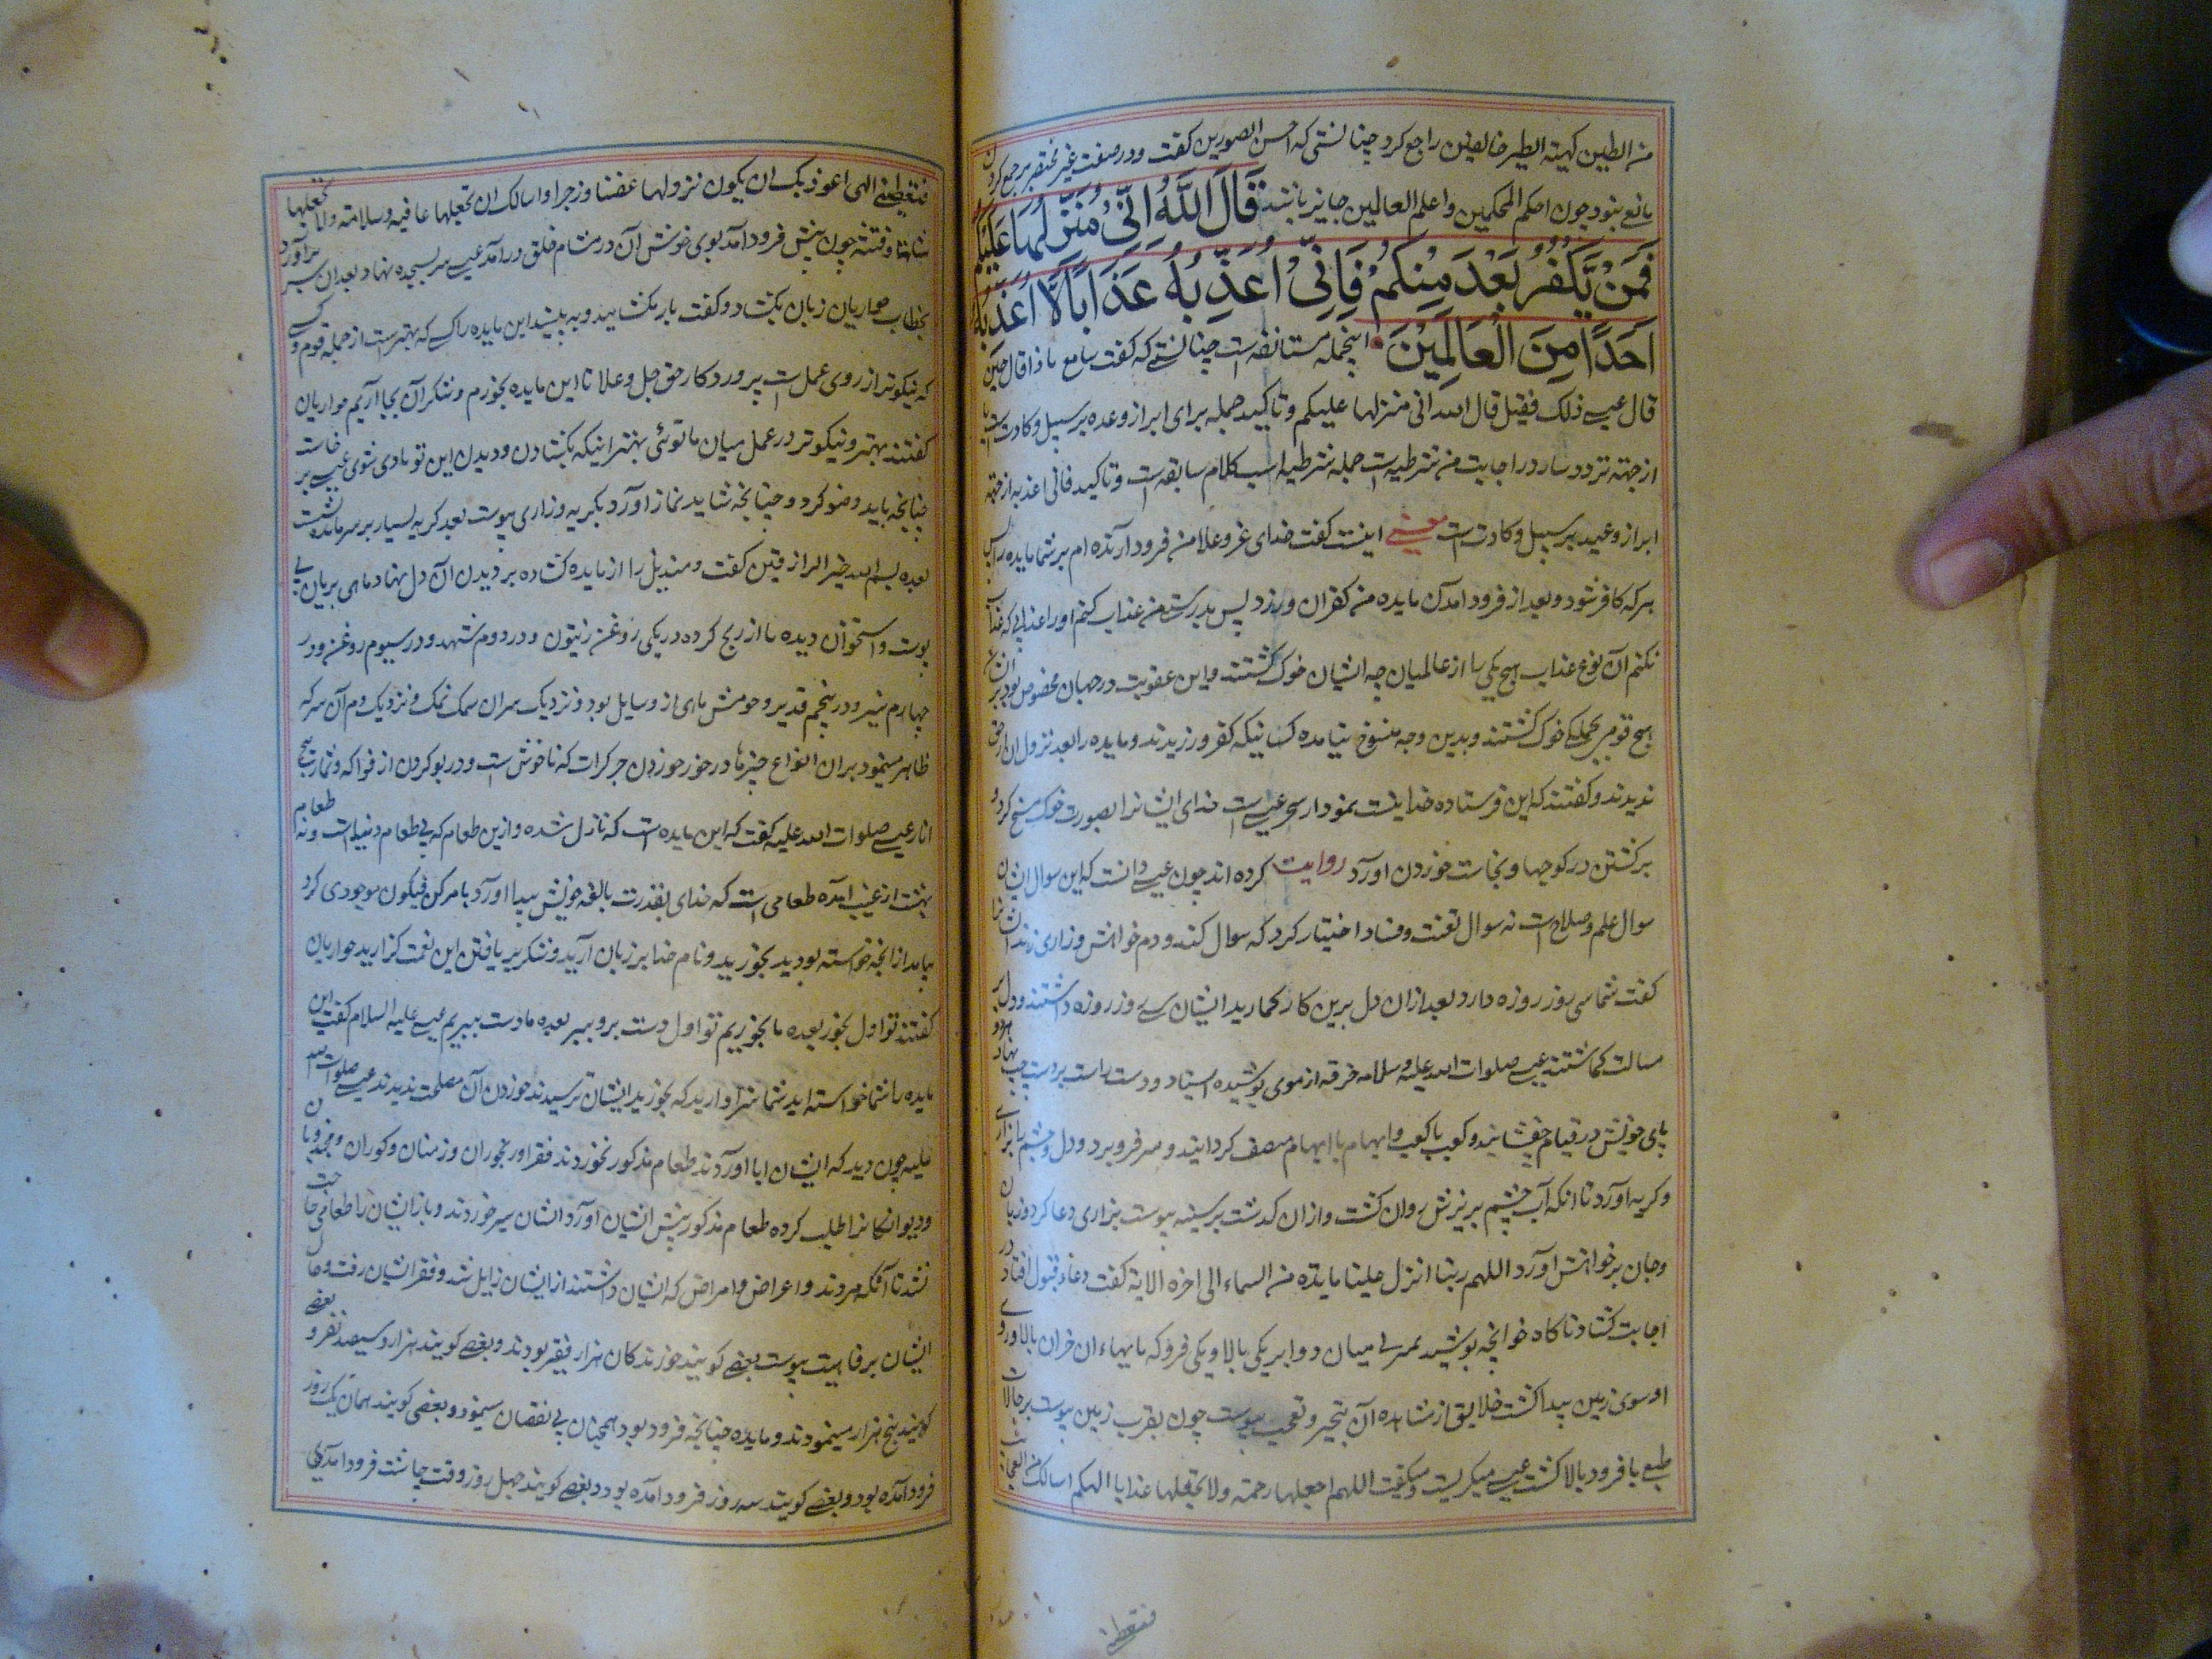 من الطین کهیئة الطیر خالقین راجع کرد چنانستی که احسن المصورین کفت و در صفت غیر مختصر بر جمع کردن
مانع نبود چون احکم المحکمین و اعلم العالمین جایز باشد قَالَ اللّٰهُ اِنِّیْ مُنَزِّلُهَا عَلَیْکُمْ
فَمَنْ یَّکْفُرْ بَعْدَ مِنْکُمْ فَاِنِّیْ اُعَذِّبُهٗ عَذَابًا لَّا اُعَذِّبُهٗ
اَحَدًا مِنَ الْعَالَمِیْنَ اینجمله مستانفه است چنانستی که کفت سامع ماذا قال حین
قال عیسی ذلک فقیل قال الله انی منزلها علیکم و تاکید جمله برای ابراز وعده بر سبیل وکادت است یا
از جهته تردد سار در اجابت من شرطیه است جمله شرطیه سبب کلام سابقه است و تاکید فانی اعذبه از جهته
ابراز وعید بر سبیل وکادت است معنی اینست کفت خدای عز و علا من فرود آرنده ام بر شما مایده را پس
هر که کافر شود و بعد از فرود امدن مایده من کفران ورزد پس بدرستی من عذاب کنم او را عذابی که عذاب
نکنم آن نوع عذاب هیچ یکی را از عالمیان چه ایشان خوک کشتند و این عقوبت در جهان مخصوص بود بر ایشان
هیچ قومی بجملکی خوک نکشتند و بدین وجه منسوخ نیامده کسانیکه کفر ورزیدند و مایده را بعد نزول ان از حق
ندیدند و کفتند که این فرستاده خدا نیست نمودار سحر عیسی است خدای ایشانرا بصورت خوک مسخ کرد و
برکشتن در کوچها و نجاست خوردن اورد روایت کرده اند چون عیسی دانست که این سوال ایشان
سوال علم و صلاح است نه سوال تعنت و فساد اختیار کرد که سوال کند و دم خواهش و زاری زند ایشانرا
کفت شما سی روز روزه دارد بعد ازان دل برین کار کمارید ایشان سی روز روزه داشتند و دل بر
مسالت کماشتند عیسی صلوات الله علیه و سلامه خرقه از موی پوشیده استاد و دست راست بر دست چپ نهاد
پای خویش در قیام چفشانید و کعب با کعب و ابهام با ابهام مصف کردانید و سر فرو برد و دل و چشم را بزاری
و کریه اورد تا انکه آب چشم بر نیزش روان کشت و ازان کذشت بر سینه پیوست بزاری دعا کرد و زبان
و جان بر خواهش اورد اللهم ربنا انزل علینا مایدة من السماء الی اخره الایة کفت دعاء قبول افتاد در
اجابت کشاد ناکاه خوانچه پوشیده میان دو ابر یکی بالا و یکی فرو که بابهاء ان خوان بالا و روی
او سوی زمین پیدا کشت خلایق از مشاهده آن بتحیر و تعجب پیوست چون بقرب زمین پیوست بر حالات
طبع با فرود بالا کشت عیسی میکریست و میکفت اللهم اجعلها رحمة و لا تجعلها عذابا الهکم اسالک من العجایب
فتعطنی
فتعطینی الهی اعوذ بک ان یکون نزولها غضبا و زجرا و اسالک ان تجعلها عافیة و سلامة و لا تجعلها
و فتنة چون پیش فرود آمد بوی خوش آن در مشام خلق در آمد عیسی سر بسجده نهاد بعد ان سر برآورد
بخطاب حواریان زبان بکشاد و کفت باز بکشایید و به بینید این مایده را کسی که بهتر است از جمله قوم و کسی
که نیکوتر از روی عمل است پروردکار حق جل و علا تا این مایده بخورم و شکر آن بجا آریم حواریان
کفتند بهتر و نیکوتر در عمل میان ما توئی بهتر اینکه بکشادن و دیدن این تو بادی شوی عیسی بر خاست
چنانچه باید وضو کرد و چنانچه شاید نماز اورد بکریه و زاری پیوست بعد کریه بسیار بر سر مایده نشست
بعده بسم الله خیر الرازقین کفت و مندیل را از مایده کشاده بر دیدن آن دل نهاد ماهی بریان بی
پوست و استخوان دیده با از ریح کرده در یکی روغن زیتون و در دوم شهد و در سیوم روغن و در
چهارم پنیر و در پنجم قدیر و خومش ماهی از وسایل بود و نزدیک سران سمک نمک و نزدیک دم آن سرکه
ظاهر مینمود بران انواع چیزها در خور خوردن جز کراث که ناخوش است و در بو کردن از فواکه و ثمار هیچ
انار عیسی صلوات الله علیه کفت که این مایده است که نازل شده و ازین طعام که بی طعام دنیا است و نه طعام
بهشت از غیب امده طعامی است که خدای بقدرت بالغه خویش پیدا اورد بامر کن فیکون موجودی کرد
بیاید از انچه خواسته بودید بخورید و نام خدا بر زبان آرید و شکر بر یافتن این نعمت کزارید حواریان
کفتند تو اول بخور بعده ما بخوریم تو اول دست برو ببر بعده ما دست ببریم عیسی علیه السلام کفت این
مایده را شما خواسته اید شما سزاوارید که بخورید ایشان ترسیدند خوردن آن مصلحت ندیدند عیسی صلوات الله
علیه چون دید که ایشان ابا اوردند طعام مذکور نخوردند فقرا و رنجوران و زمنان و کوران و مجذومان
و دیوانکانرا طلب کرده طعام مذکور پیش ایشان اورد ایشان سیر خوردند و باز ایشان را طعامی حاجت
نشد تا آنکه مردند و اعراض و امراض که ایشان داشتند از ایشان زایل شد و فقر ایشان رفت و حال
ایشان برفاهیت پیوست بعضی کویند خورندکان هزار فقیر بودند و بعضی کویند هزار و سیصد نفر و بعضی
کویند پنج هزار مینمودند و مایده چنانچه فرود بود همچنان بی نقصان مینمود و بعضی کویند همان یک روز
فرود آمده بود و بعضی کویند سه روز فرود امده بود و بعضی کویند چهل روز وقت چاشت فرود امدی